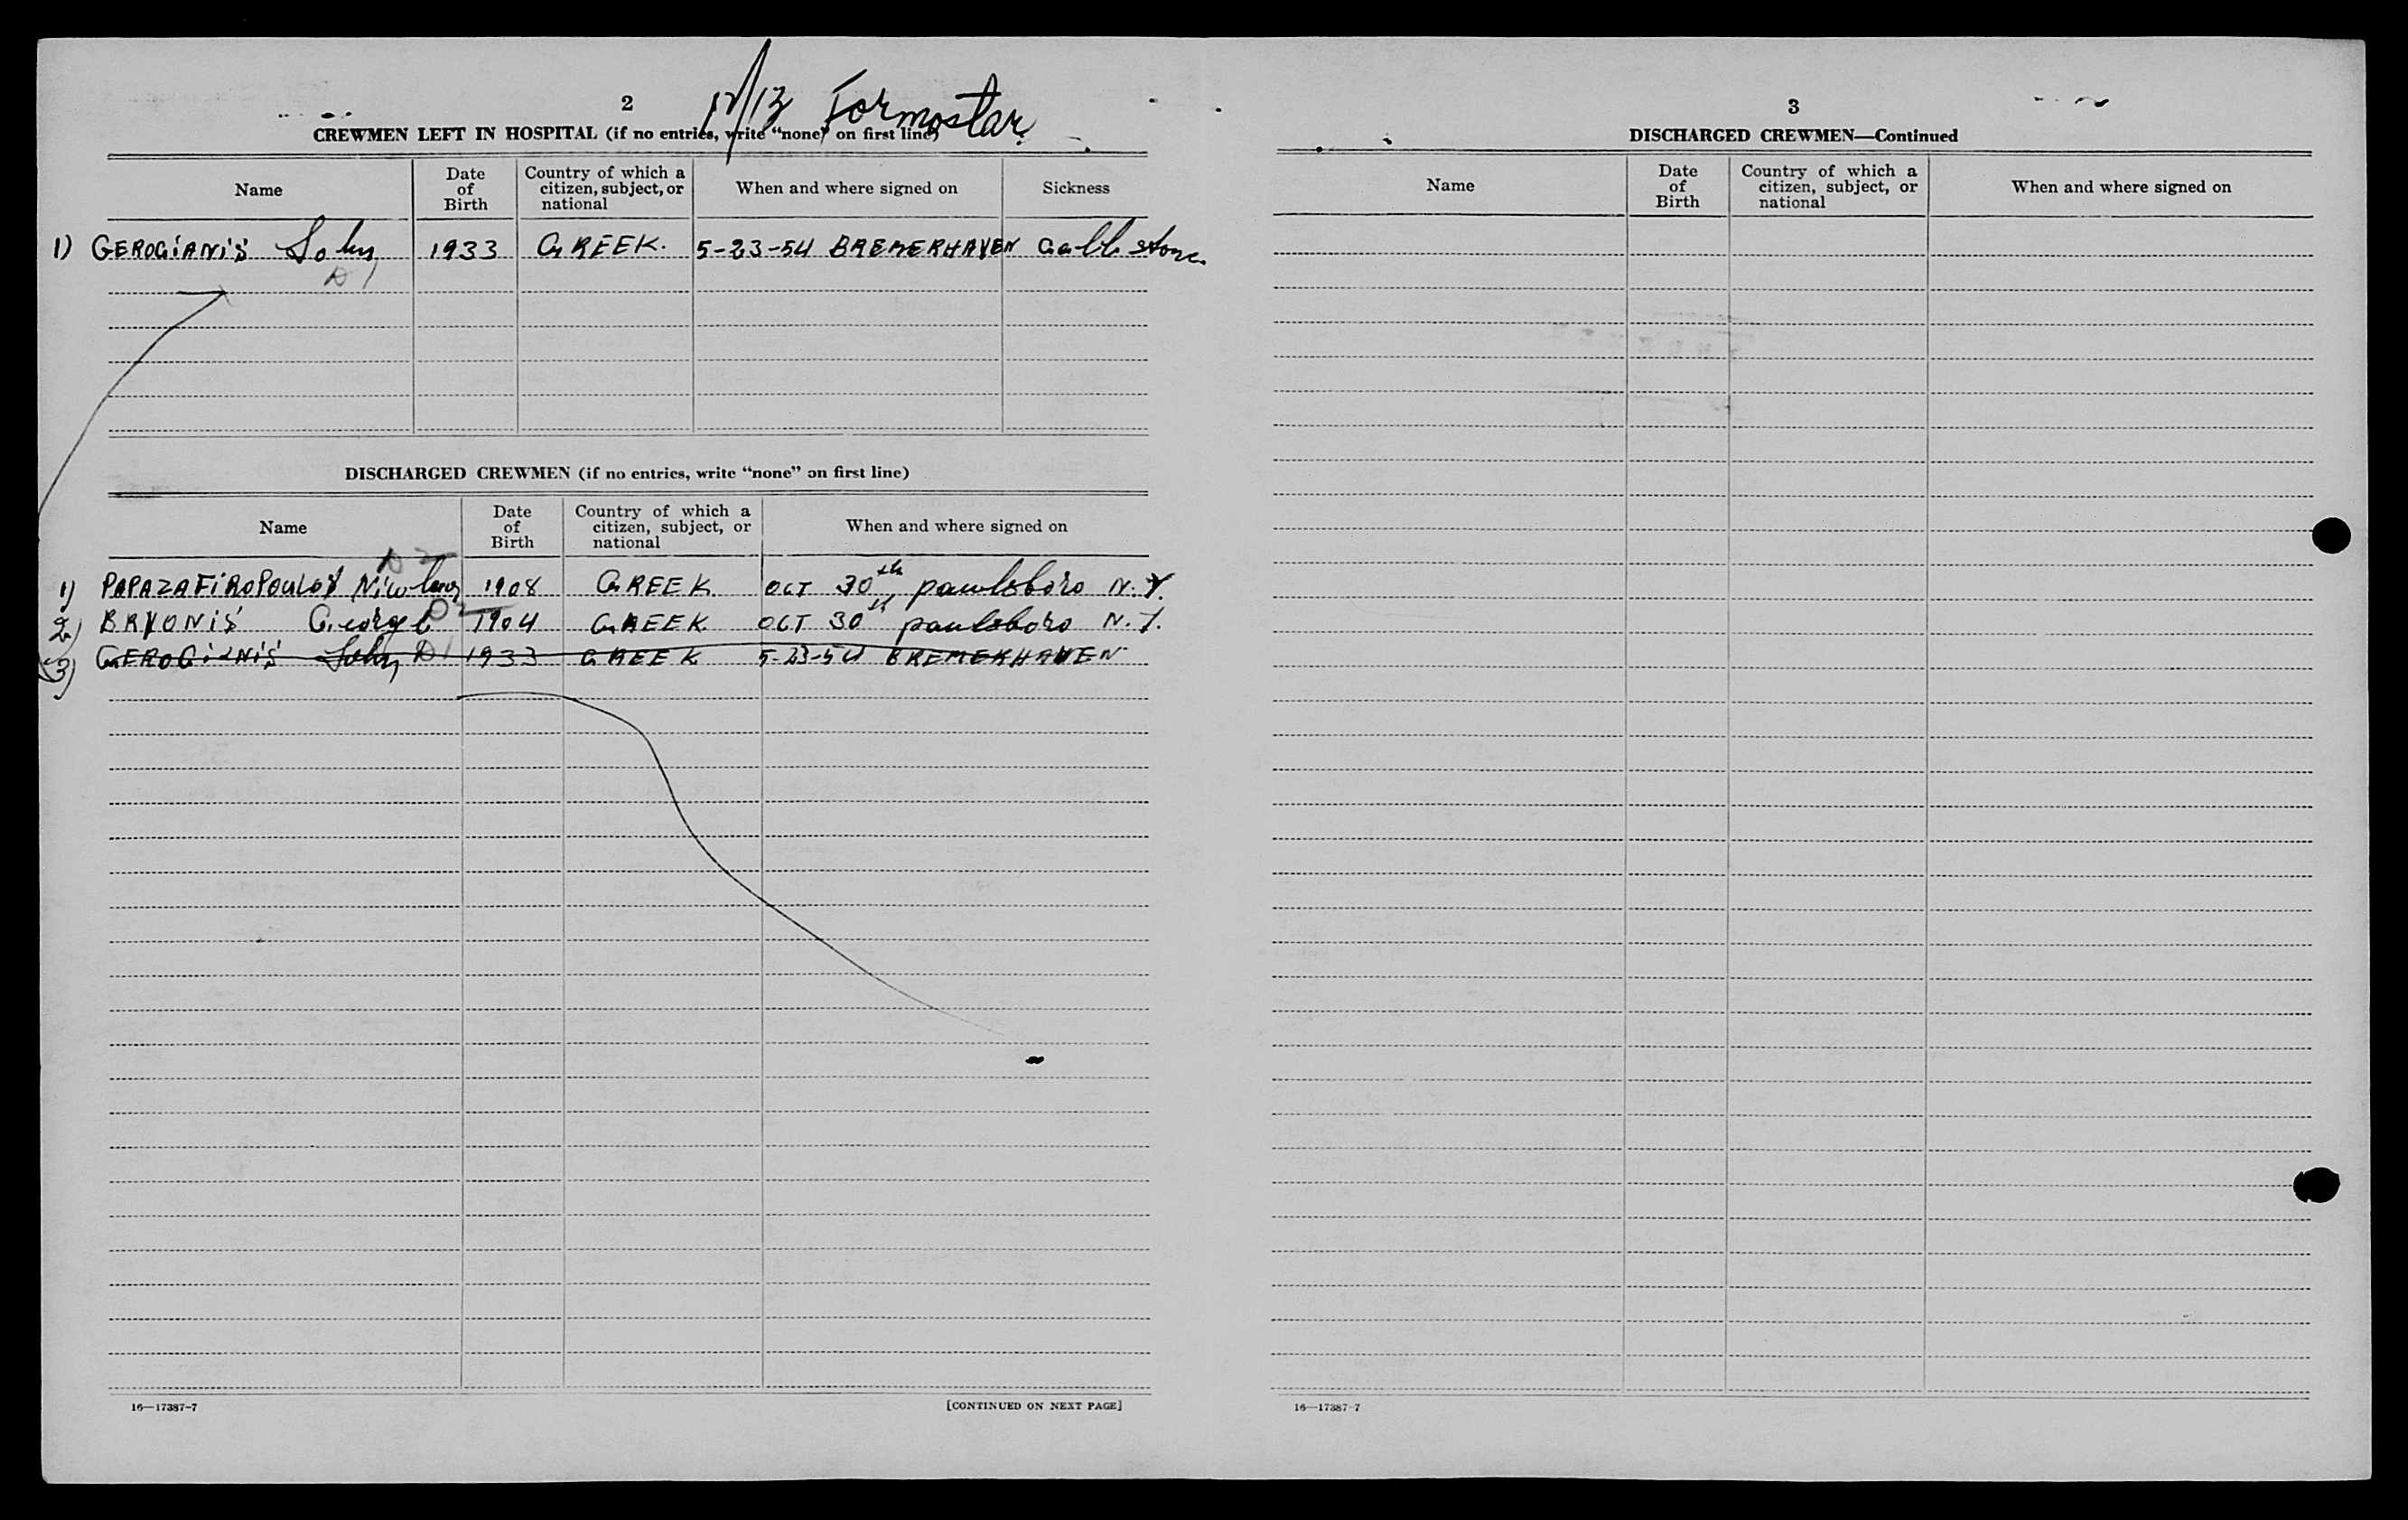 2
12/13 Formostar
CREWMEN LEFT IN HOSPITAL (if no entries, write “none” on first line)
Name
Date of Birth
Country of which a citizen, subject, or national
When and where signed on
Sickness
1) GEROGIANIS John 1933 GREEK. 5-23-54 BREMERHAVEN Gall stone.
D1
DISCHARGED CREWMEN (if no entries, write “none” on first line)
Name
Date of Birth
Country of which a citizen, subject, or national
When and where signed on
1) PAPAZAFIROPOULOS 1908 GREEK OCT 30th paulsboro N.J.
2) BRYONIS George 1904 GREEK OCT 30th paulsboro N.J.
3) GEROGIANIS John D1 1933 GREEK 5-23-54 BREMERHAVEN
16—17387-7
[CONTINUED ON NEXT PAGE]
3
DISCHARGED CREWMEN—Continued
Name
Date of Birth
Country of which a citizen, subject, or national
When and where signed on
16—17387-7